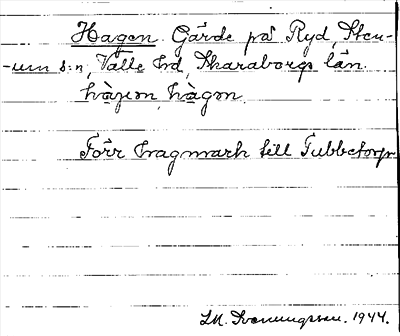 Hagen. Gärde på Ryd, Sten-
-um s:n, Valle hd, Skaraborgs län.
hàgen, hàgon
Förr hagmark till Tubbetorp
I.M. Svenungsson. 1944.